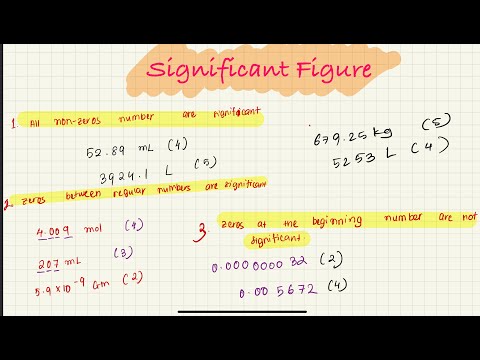 Significant Figure
1. All non-zeros number are significant
52.89 mL (4)
3924.1 L (5)
679.25 kg (5)
5253 L (4)
2. Zeros between regular numbers are significant
4.009 mol (4)
207 mL (3)
5.9 x 10⁻⁹ (2)
3. Zeros at the beginning number are not
significant.
0.0000000 32 (2)
0.00 5672 (4)